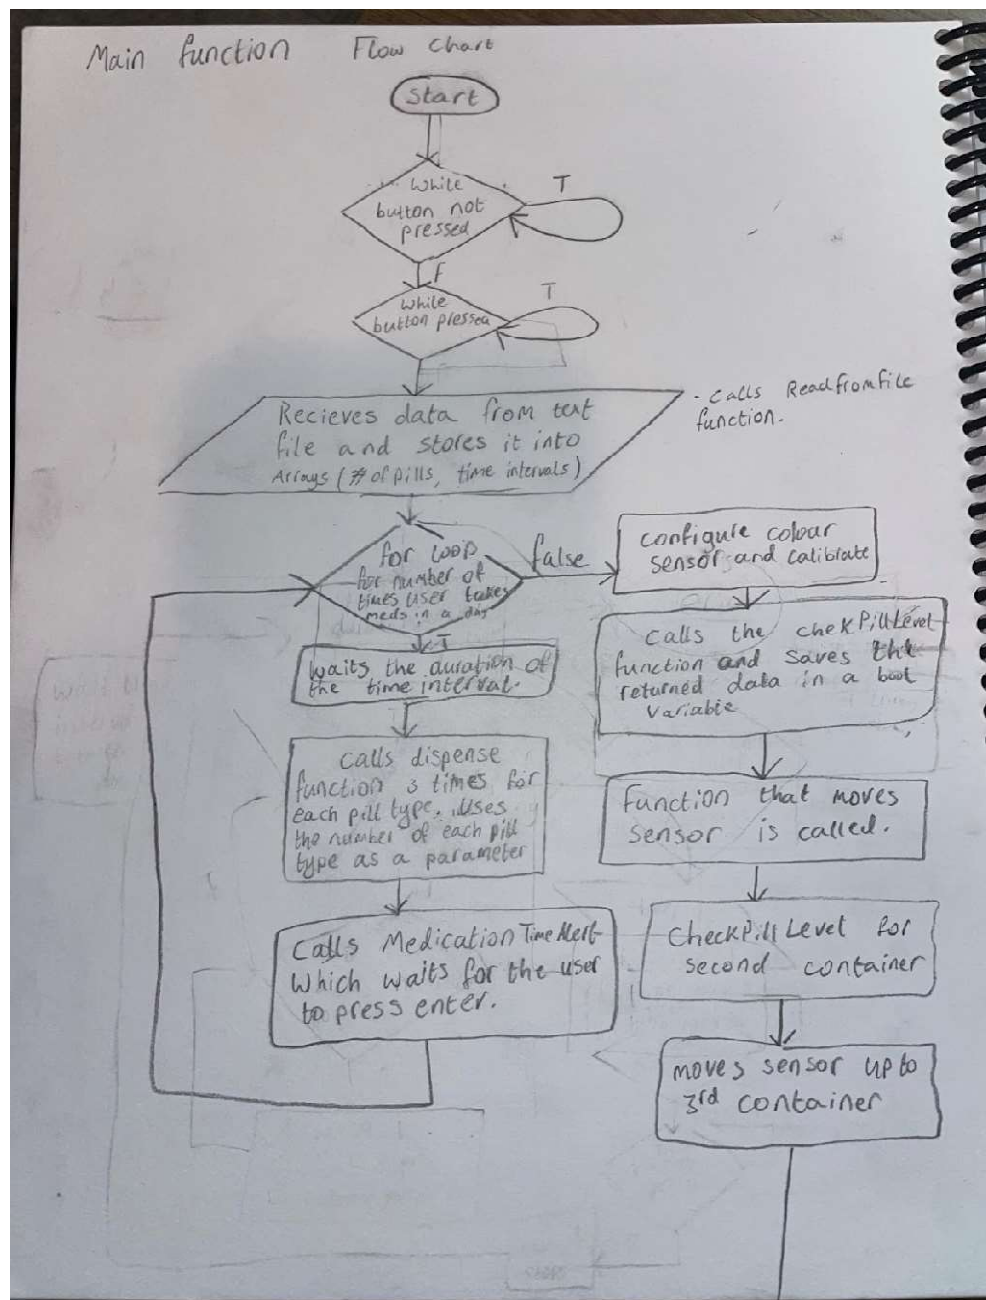 Main function Flow Chart
Start
While
button not
pressed
T
F
While
button pressed
T
Recieves data from text
file and stores it into
Arrays (# of pills, time intervals)
- Calls ReadfromFile
function.
for loop
for number of
times user takes
meds in a day
false
T
waits the duration of
the time interval.
Calls dispense
function 3 times for
each pill type. Uses
the number of each pill
type as a parameter
Calls Medication Time Alert
Which waits for the user
to press enter.
configure colour
sensor and calibrate
Calls the chekPillLevel
function and saves the
returned data in a bool
variable
Function that moves
sensor is called.
CheckPillLevel for
second container
moves sensor up to
3rd container